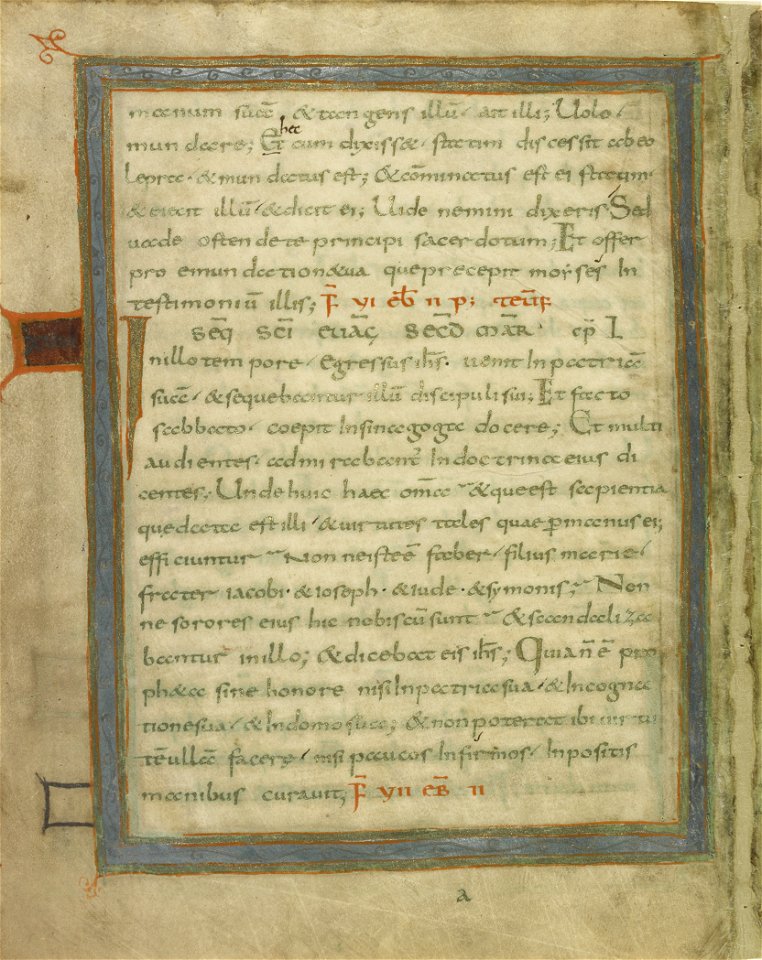 manum suā & tangens illū· ait illi; Uolo·
mundare; Et hec cum dixiss& · statim discessit ab eo
lepra· & mundatus est; & cōminatus est ei statim·
& eiecit illū· & dicit ei; Uide nemini dixeris· Sed
uade ostende te principi sacerdotum; Et offer
pro emundationæ tua que precepit moyses In
testimoniū illis; F̄ VI EB̄ II P;
SEQ̄ SC̄I EUAḠ SECD̄ MAR̄· CP̄ I
nillo tempore· Egressus ih̄s· uenit In patriā
suā· & sequebantur illū discipuli sui; Et facto
sabbato· coepit In sinagoga docere; Et multi
audientes· admirabant̄ In doctrina eius di
centes; Unde huic haec om̄a· & que est sapientia
que data est illi· & uirtutes tales quae p̄ manus ei;
efficiuntur· Non ne iste ē faber· filius marie·
frater iacobi· & Ioseph· & Iude· & symonis; Non
ne sorores eius hic nobiscū sunt· & scandaliza
bantur in illo; & dicebat eis ih̄s; Quia n̄ ē pro
ph&a sine honore nisi In patria sua· & In cogna
tione sua· & In domo sua; & non poterat ibi uirtu
tē ullā facere· nisi paucos Infirmos· Inpositis
manibus curauit; F̄ VII EB̄ II
a